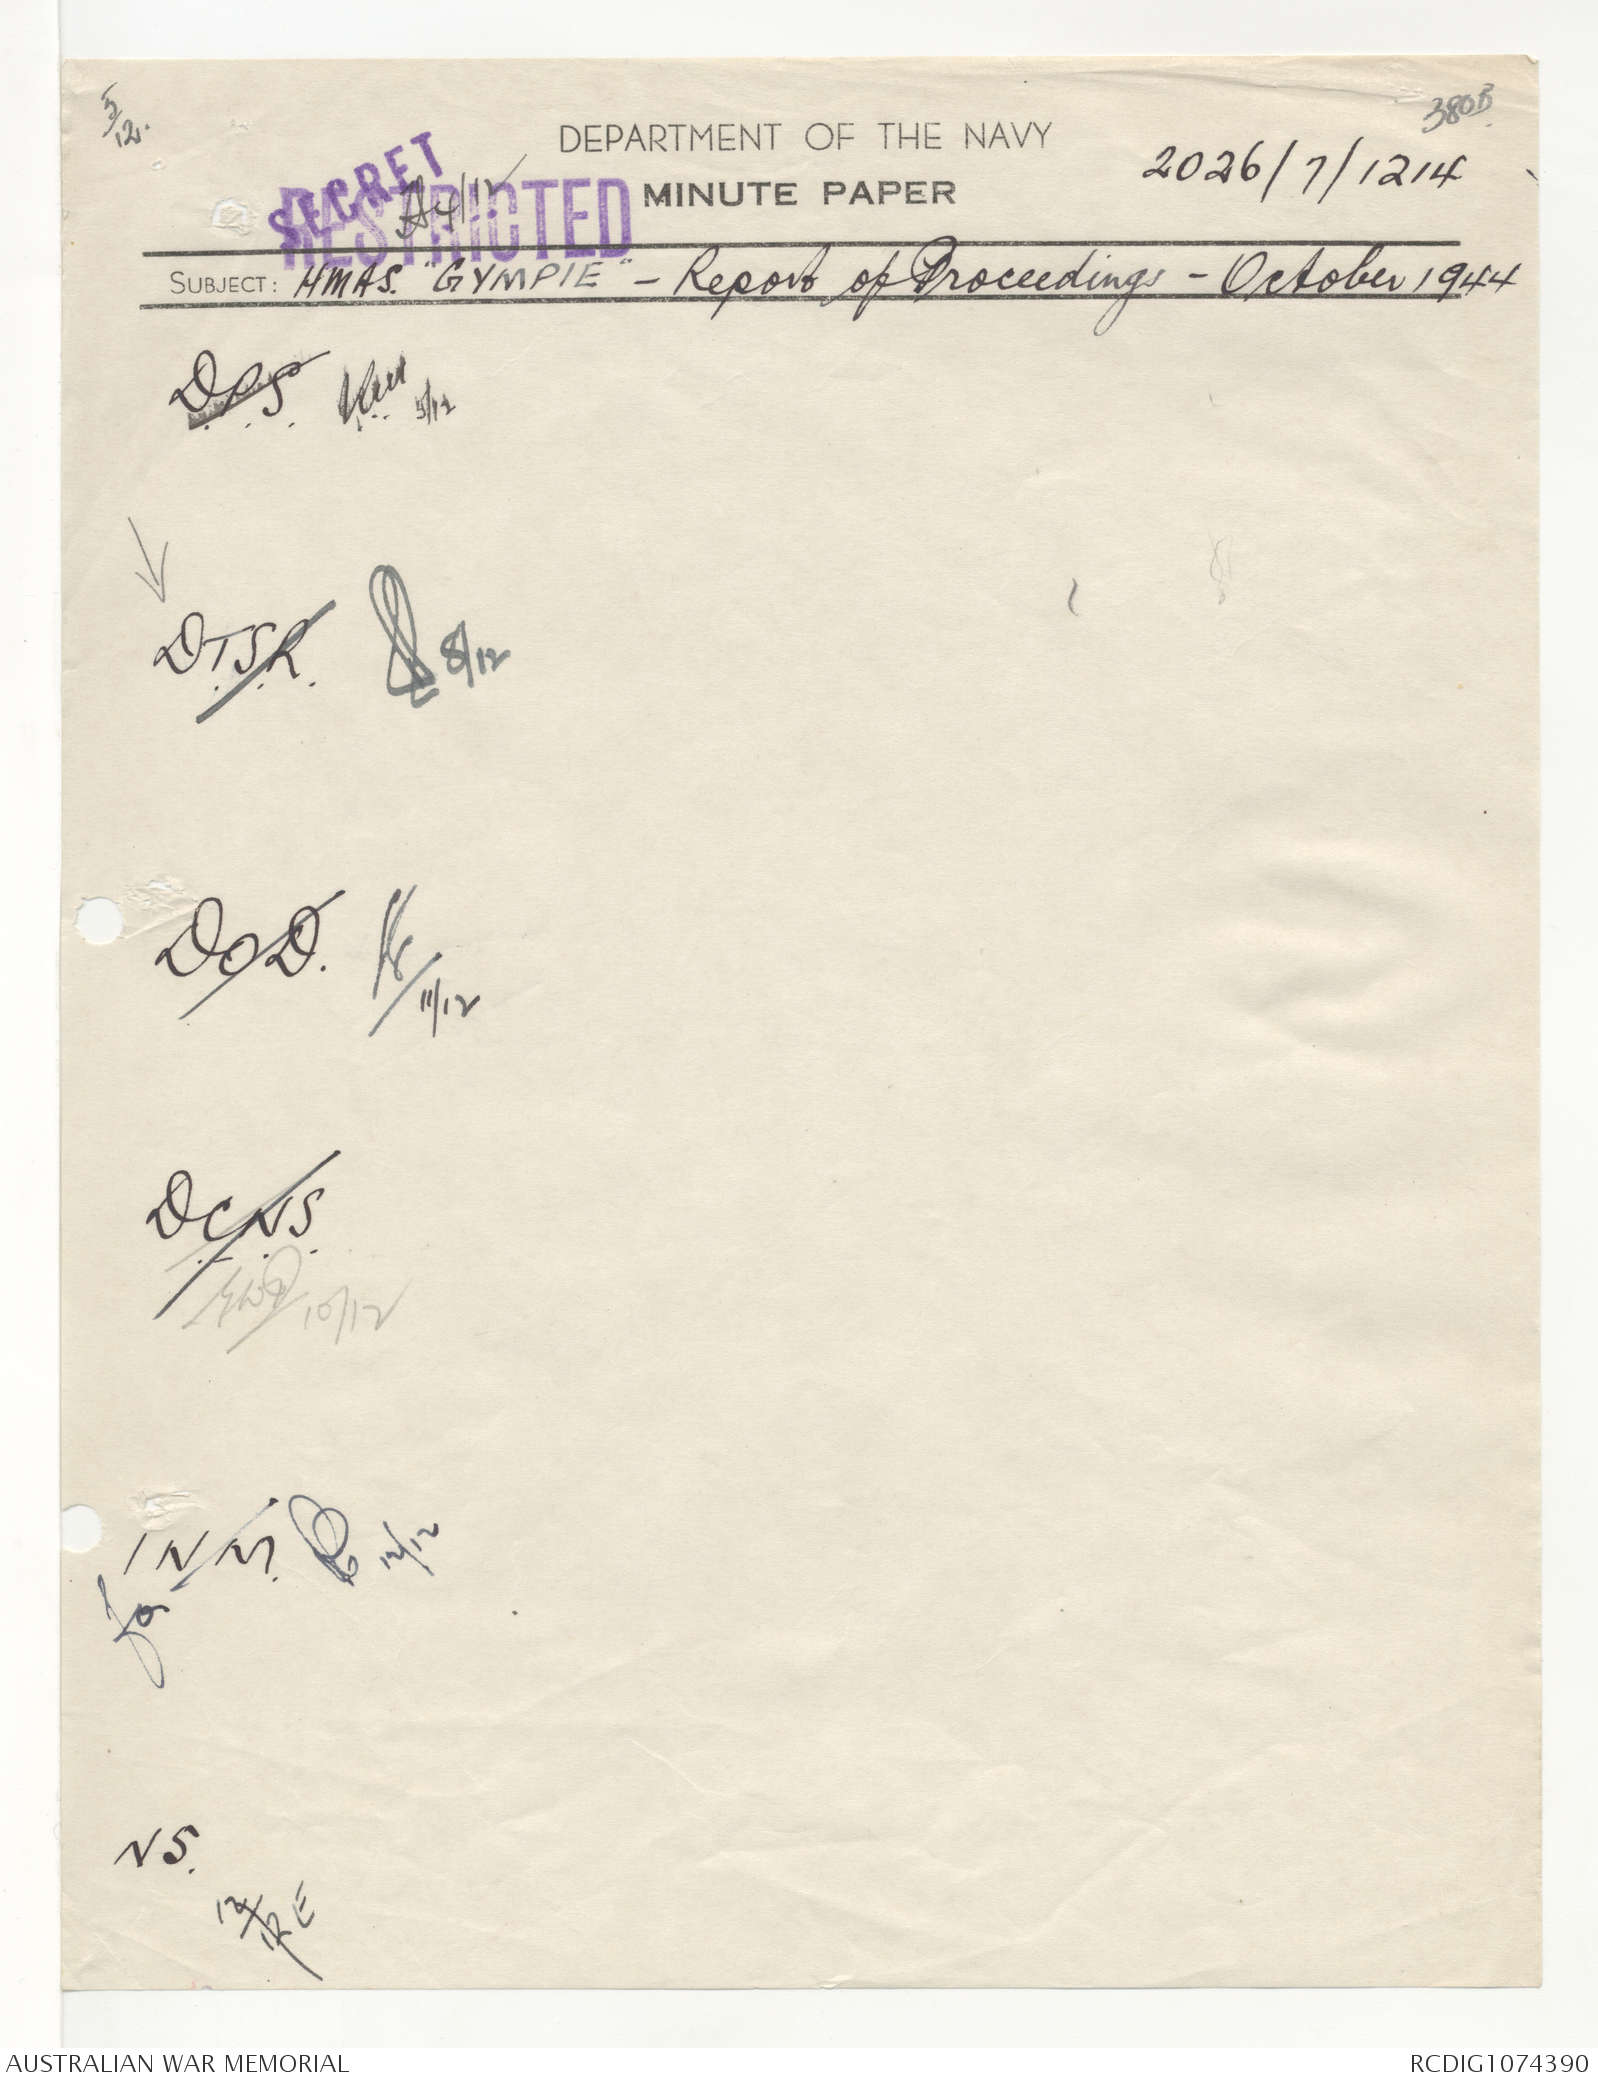 5/12.
380B
DEPARTMENT OF THE NAVY
SECRET
RESTRICTED
4/12
MINUTE PAPER
2026/7/1214
SUBJECT: HMAS. "GYMPIE" - Report of Proceedings - October 1944
5/12
D.T.S.R. 8/12
DOD. 11/12
D.C.N.S.
10/12
for INM. 12/12
NS.
AUSTRALIAN WAR MEMORIAL
RCDIG1074390